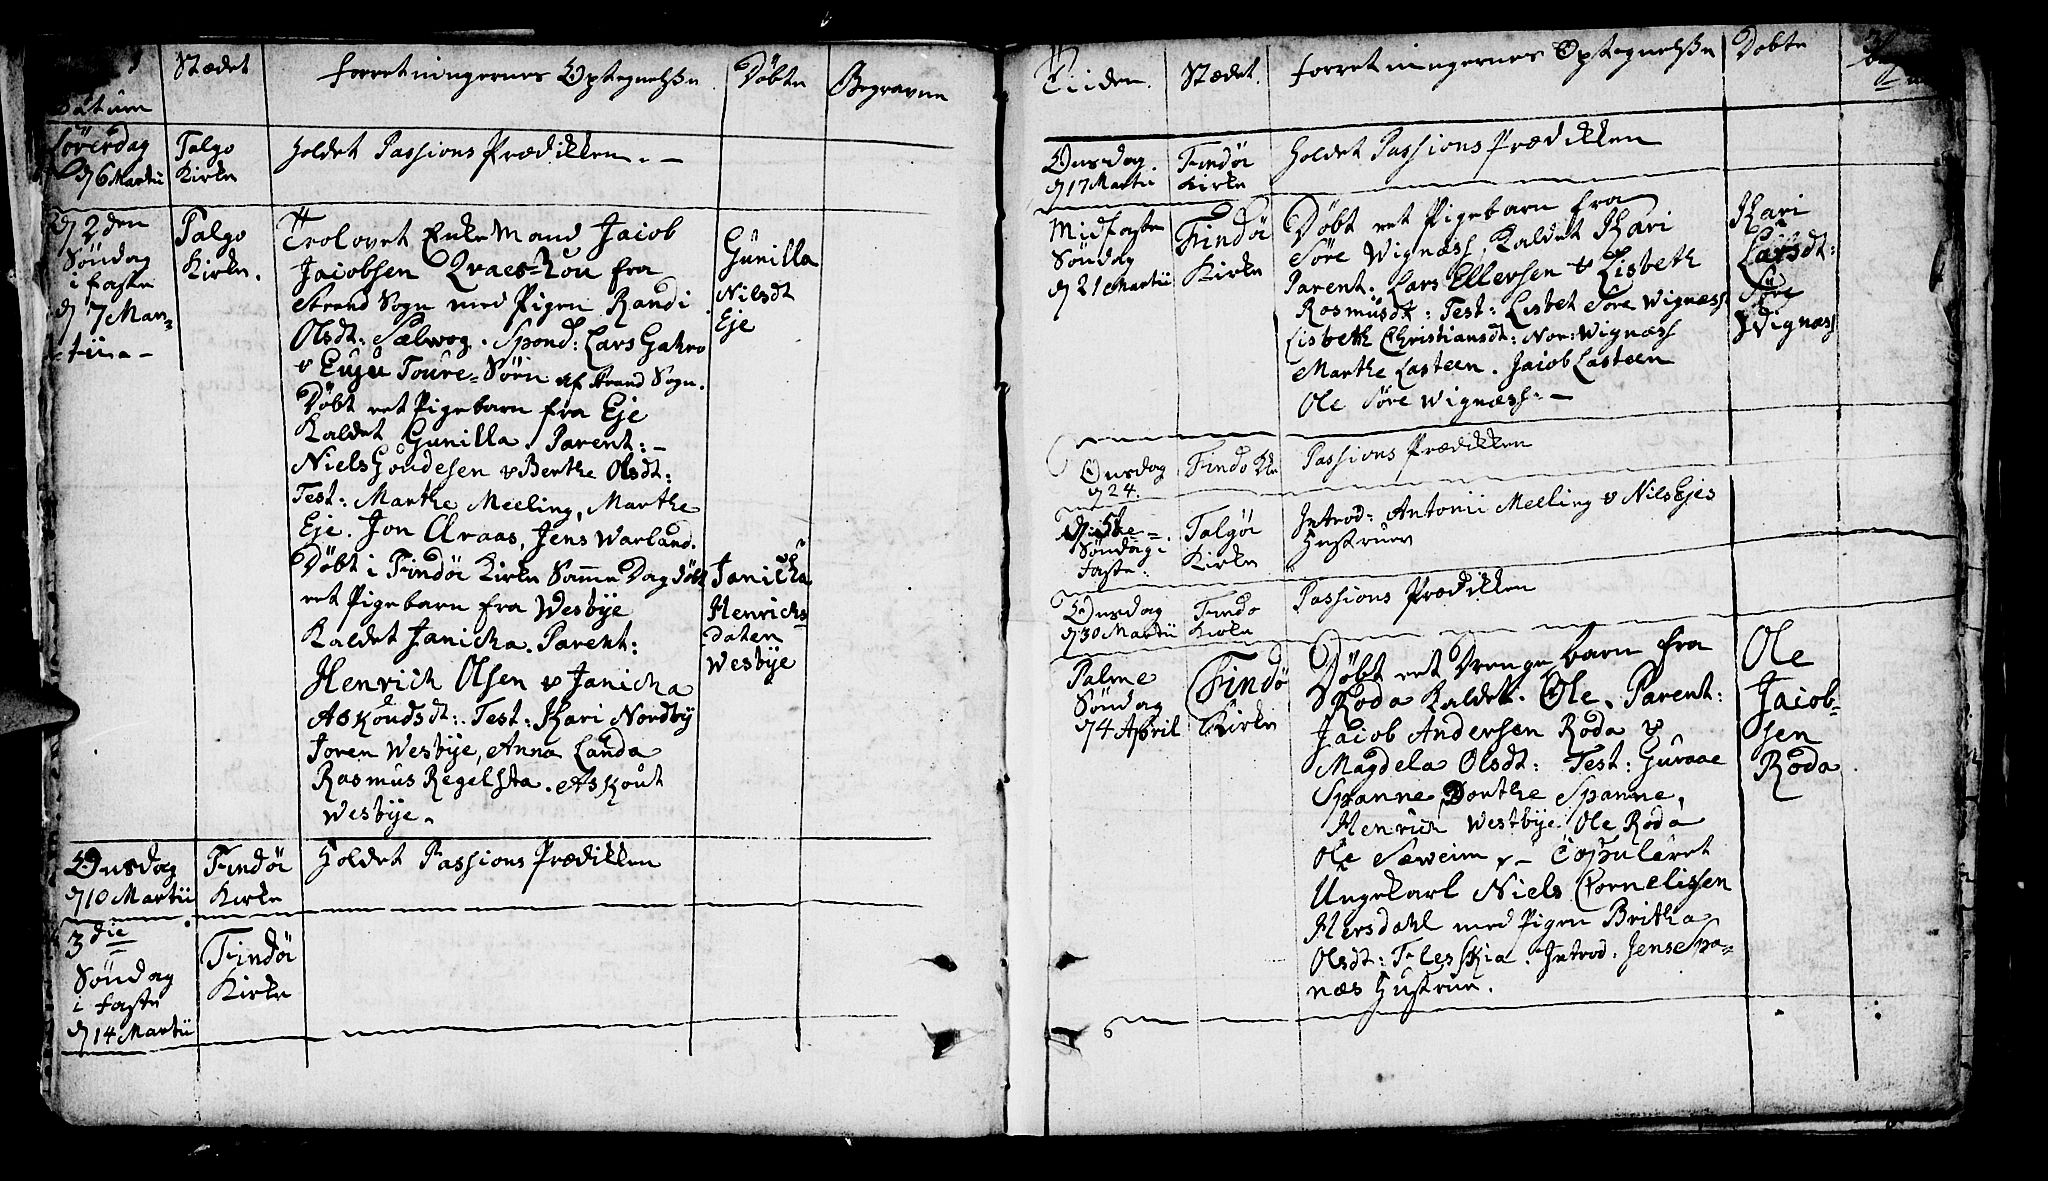 Datum
Stædet
Forretningernes Optegnelsse
Döbte
Begravne
Löverdag
d 6 Martii
Talgo
Kirke
Holdet Passions Prædikken. —
d 2den
Söndag
i faste
d 7 Mar=
tii. —
Talgo
Kirke.
Trolovet Enke Mand Jacob
Jacobsen fra
Strand Sogn med Pigen Randi
Olsdt: Sælwog. Spond: Lars
v Toure=Sörn af Strand Sogn.
Döbt ret Pigebarn fra Eje
Kaldet Gunilla. Parent: —
Niels Goudesen v Berthe Olsdt:
Test: Marthe Meeling, Marthe
Eje. Jon Araas, Jens Warland.
Gunilla
Nilsdt
Eje
Döbt i Findöe Kirke Samme Dag döbt
ret Pigebarn fra Wesbÿe
Kaldet Janicha. Parent:
Henrich Olsen v Janicha
Askoudsdt: Test: Kari Nordbÿ
Joren Wesbÿe, Anna Landa
Rasmus Regelsta. Askout
Wesbÿe.
Janicha
Henrichs
daten
Wesbÿe
Onsdag
d 10 Martii
Findöe
Kirke
Holdet Passions Prædikken
3die
Söndag
i faste
d 14 Martii
Findöe
Kirke
Tiiden.
Stædet.
Forretningernes Optegnelsse
Döbte
Onsdag
d 17 Martii
Findöe
Kirke
Holdet Passions Prædikken
Midfaste
Söndag
d 21 Martii
Findöe
Kirke
Döbt ret Pigebarn fra
Söre Wignæss, Kaldet Kari
Parent: Lars Ellersen v Lisbeth
Rosmusdt: Test: Lisbet Söre Wignæss
Lisbeth Christiansdt: Nor: Wignæss
Marthe Lasteen. Jacob Lasteen
Ole Söre Wignæss. —
Kari
Larsdt:
Söre
Wignæss
Onsdag
d 24.
Findo Kke
Passions Prædikken
Söndag i
Faste.
Talgöe
Kirke
Introd: Antonii Melling v Nils Ejes
Hustruer
Onsdag
d 30 Martii
Findo
Kirke
Passions Prædikken
Palme
Söndag
d 4 April
Findö
Kirke
Döbt ret Drenge barn fra
Roda Kaldet. Ole. Parent:
Jacob Andersen Roda v
Magdela Olsdt: Test: Guraae
Spanne, Dorthe Spanne,
Henrich Westbÿe. Ole Roda
Ole Sæweim v — Copuleret
Ungekarl Niels Cornelissen
Hersdahl med Pigen Britha
Olsdt: Flesskia. Introd. Jens Spa=
næs Hustrue.
Ole
Jacob=
sen
Roda